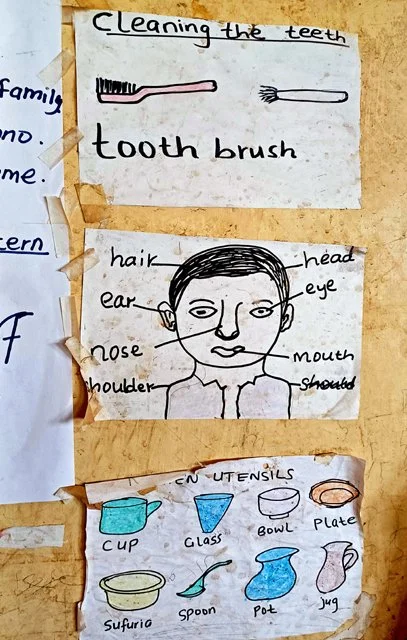 family
no.
me.
Cleaning the teeth
tooth brush
hair
head
ear
eye
nose
mouth
houlder
EN UTENSILS
CUP
Glass
Bowl
Plate
Sufuria
Spoon
Pot
Jug